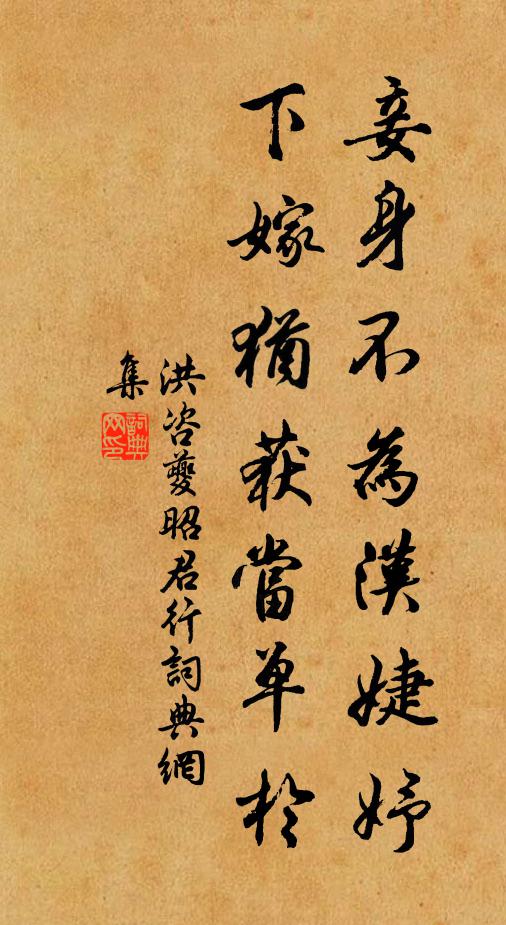 妾身不為漢婕妤
下嫁猶获當单於
洪咨夔昭君行詞典網
集
詞典
网印